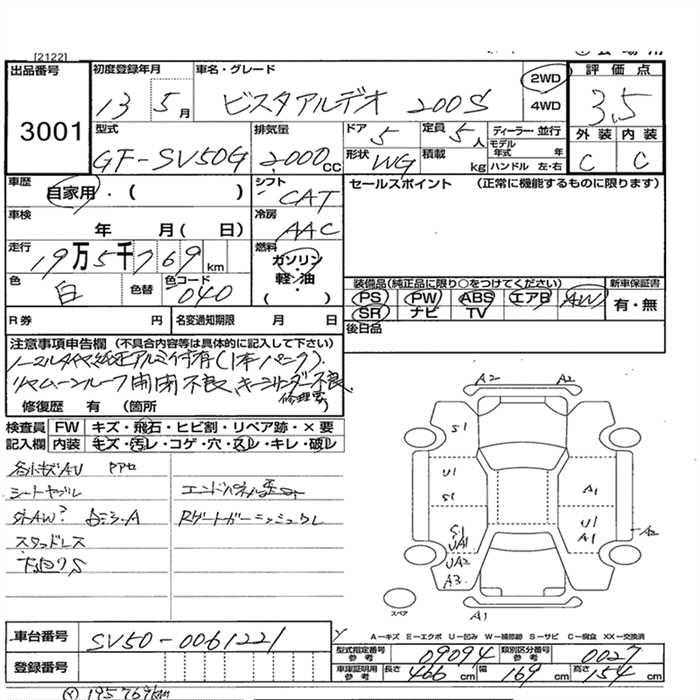 [2122]
出品番号 3001
初度登録年月 13 5月
車名・グレード ビスタアルデオ 200S
2WD 4WD
評価点 3.5
外装 C 内装 C
型式 GF-SV50G
排気量 2,000cc
ドア 5 定員 5人
ディーラー・並行
モデル年式 年
形状 WG 積載 kg ハンドル 左・右
車歴 自家用・( )
シフト CAT
車検 年 月( 日)
冷房 AAC
走行 19万5千769km
燃料 ガソリン・軽油 ( )
色 白 色替 色コード 040
セールスポイント (正常に機能するものに限ります)
装備品(純正品に限り○をつけてください) 新車保証書
PS PW ABS エアB AW 有・無
SR ナビ TV
後日品
R券 円 名変通知期限 月 日
注意事項申告欄 (不具合内容等は具体的に記入して下さい)
ノーマルタイヤ純正アルミ付有(1本パンク).
リヤムーンルーフ開閉不良、キーシリンダー不良
修理要
修復歴 有 (箇所
検査員記入欄 FW キズ・飛石・ヒビ割・リペア跡・×要
内装 キズ・汚レ・コゲ・穴・スレ・キレ・破レ
各小キズAU
シートヤブレ
外AW?
スタッドレス
下回りS
Rゲートガーニッシュワレ
A2 A2
S1
U1
S1
A1
U1
A1
A2
S1
UA1
UA2
A3
A1
スペア
A-キズ E-エクボ U-凹み W-補修跡 S-サビ C-腐食 XX-交換済
車台番号 SV50-0061221
登録番号
型式指定番号 参考 09094 類別区分番号 参考 0027
車庫証明用 参考 長さ 466cm 幅 169cm 高さ 154cm
195769km